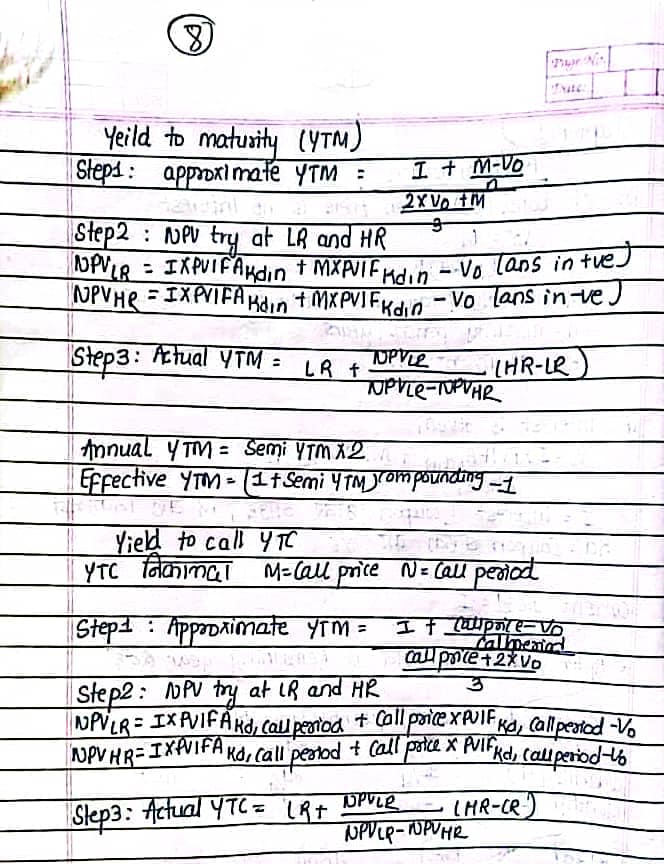 8
Page No.
Date:
Yeild to maturity (YTM)
Step1 : approximate YTM = I + M-Vo/n
2×Vo+M/3
Step2 : NPV try at LR and HR
NPVLR = I×PVIFAKd,n + M×PVIFKd,n - Vo (ans in +ve)
NPVHR = I×PVIFAKd,n + M×PVIFKd,n - Vo (ans in -ve)
Step3: Actual YTM = LR + NPVLR/NPVLR-NPVHR (HR-LR)
Annual YTM = Semi YTM×2
Effective YTM = (1+Semi YTM)compounding -1
Yield to call YTC
YTC M=Call price N=Call period
Step1 : Approximate YTM = I + Callprice-Vo/Callperiod
Call price+2×Vo/3
Step2: NPV try at LR and HR
NPVLR = I×PVIFAKd, Call period + Call price×PVIFKd, Call period -Vo
NPVHR= I×PVIFAKd, Call period + Call price × PVIFKd, Call period-Vo
Step3: Actual YTC = LR+ NPVLR/NPVLR-NPVHR (HR-LR)